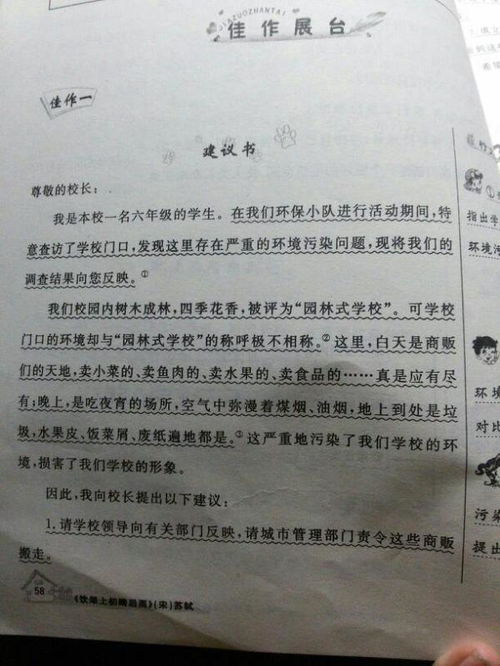 JIAZUOZHANTAI
佳作展台
佳作一
建议书
尊敬的校长：
我是本校一名六年级的学生。在我们环保小队进行活动期间，特
意查访了学校门口，发现这里存在严重的环境污染问题，现将我们的
调查结果向您反映。①
我们校园内树木成林，四季花香，被评为“园林式学校”。可学校
门口的环境却与“园林式学校”的称呼极不相称。②这里，白天是商贩
们的天地，卖小菜的、卖鱼肉的、卖水果的、卖食品的……真是应有尽
有；晚上，是吃夜宵的场所，空气中弥漫着煤烟、油烟，地上到处是垃
圾，水果皮、饭菜屑、废纸遍地都是。③这严重地污染了我们学校的环
境，损害了我们学校的形象。
因此，我向校长提出以下建议：
1.请学校领导向有关部门反映，请城市管理部门责令这些商贩
搬走。
58
《饮湖上初晴后雨》(宋)苏轼
①
指出学
环境污
环境
对比
污染
提出